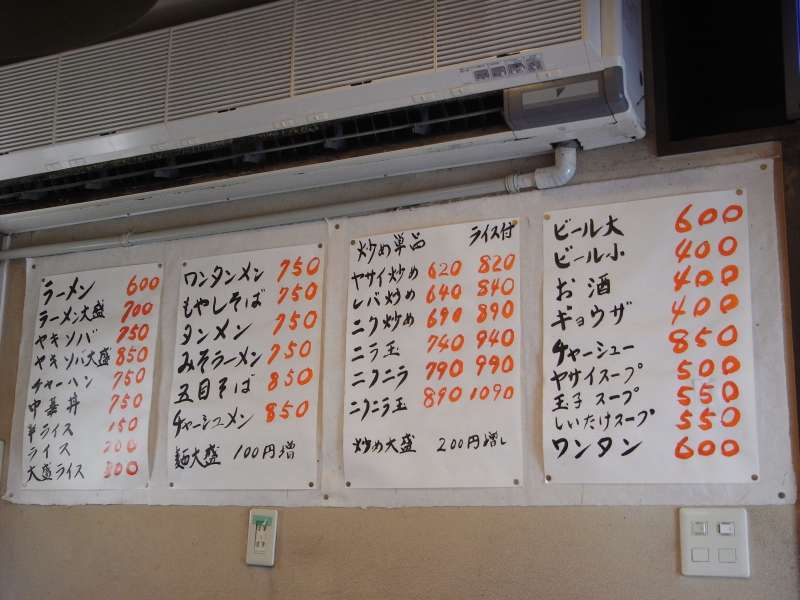 ラーメン 600
ラーメン大盛 700
ヤキソバ 750
ヤキソバ大盛 850
チャーハン 750
中華丼 750
半ライス 150
ライス 200
大盛ライス 300
ワンタンメン 750
もやしそば 750
タンメン 750
みそラーメン 750
五目そば 850
チャーシュメン 850
麺大盛 100円増
炒め単品 ライス付
ヤサイ炒め 620 820
レバ炒め 640 840
ニク炒め 690 890
ニラ玉 740 940
ニクニラ 790 990
ニクニラ玉 890 1090
炒め大盛 200円増し
ビール大 600
ビール小 400
お酒 400
ギョウザ 400
チャーシュー 850
ヤサイスープ 500
玉子スープ 550
しいたけスープ 550
ワンタン 600